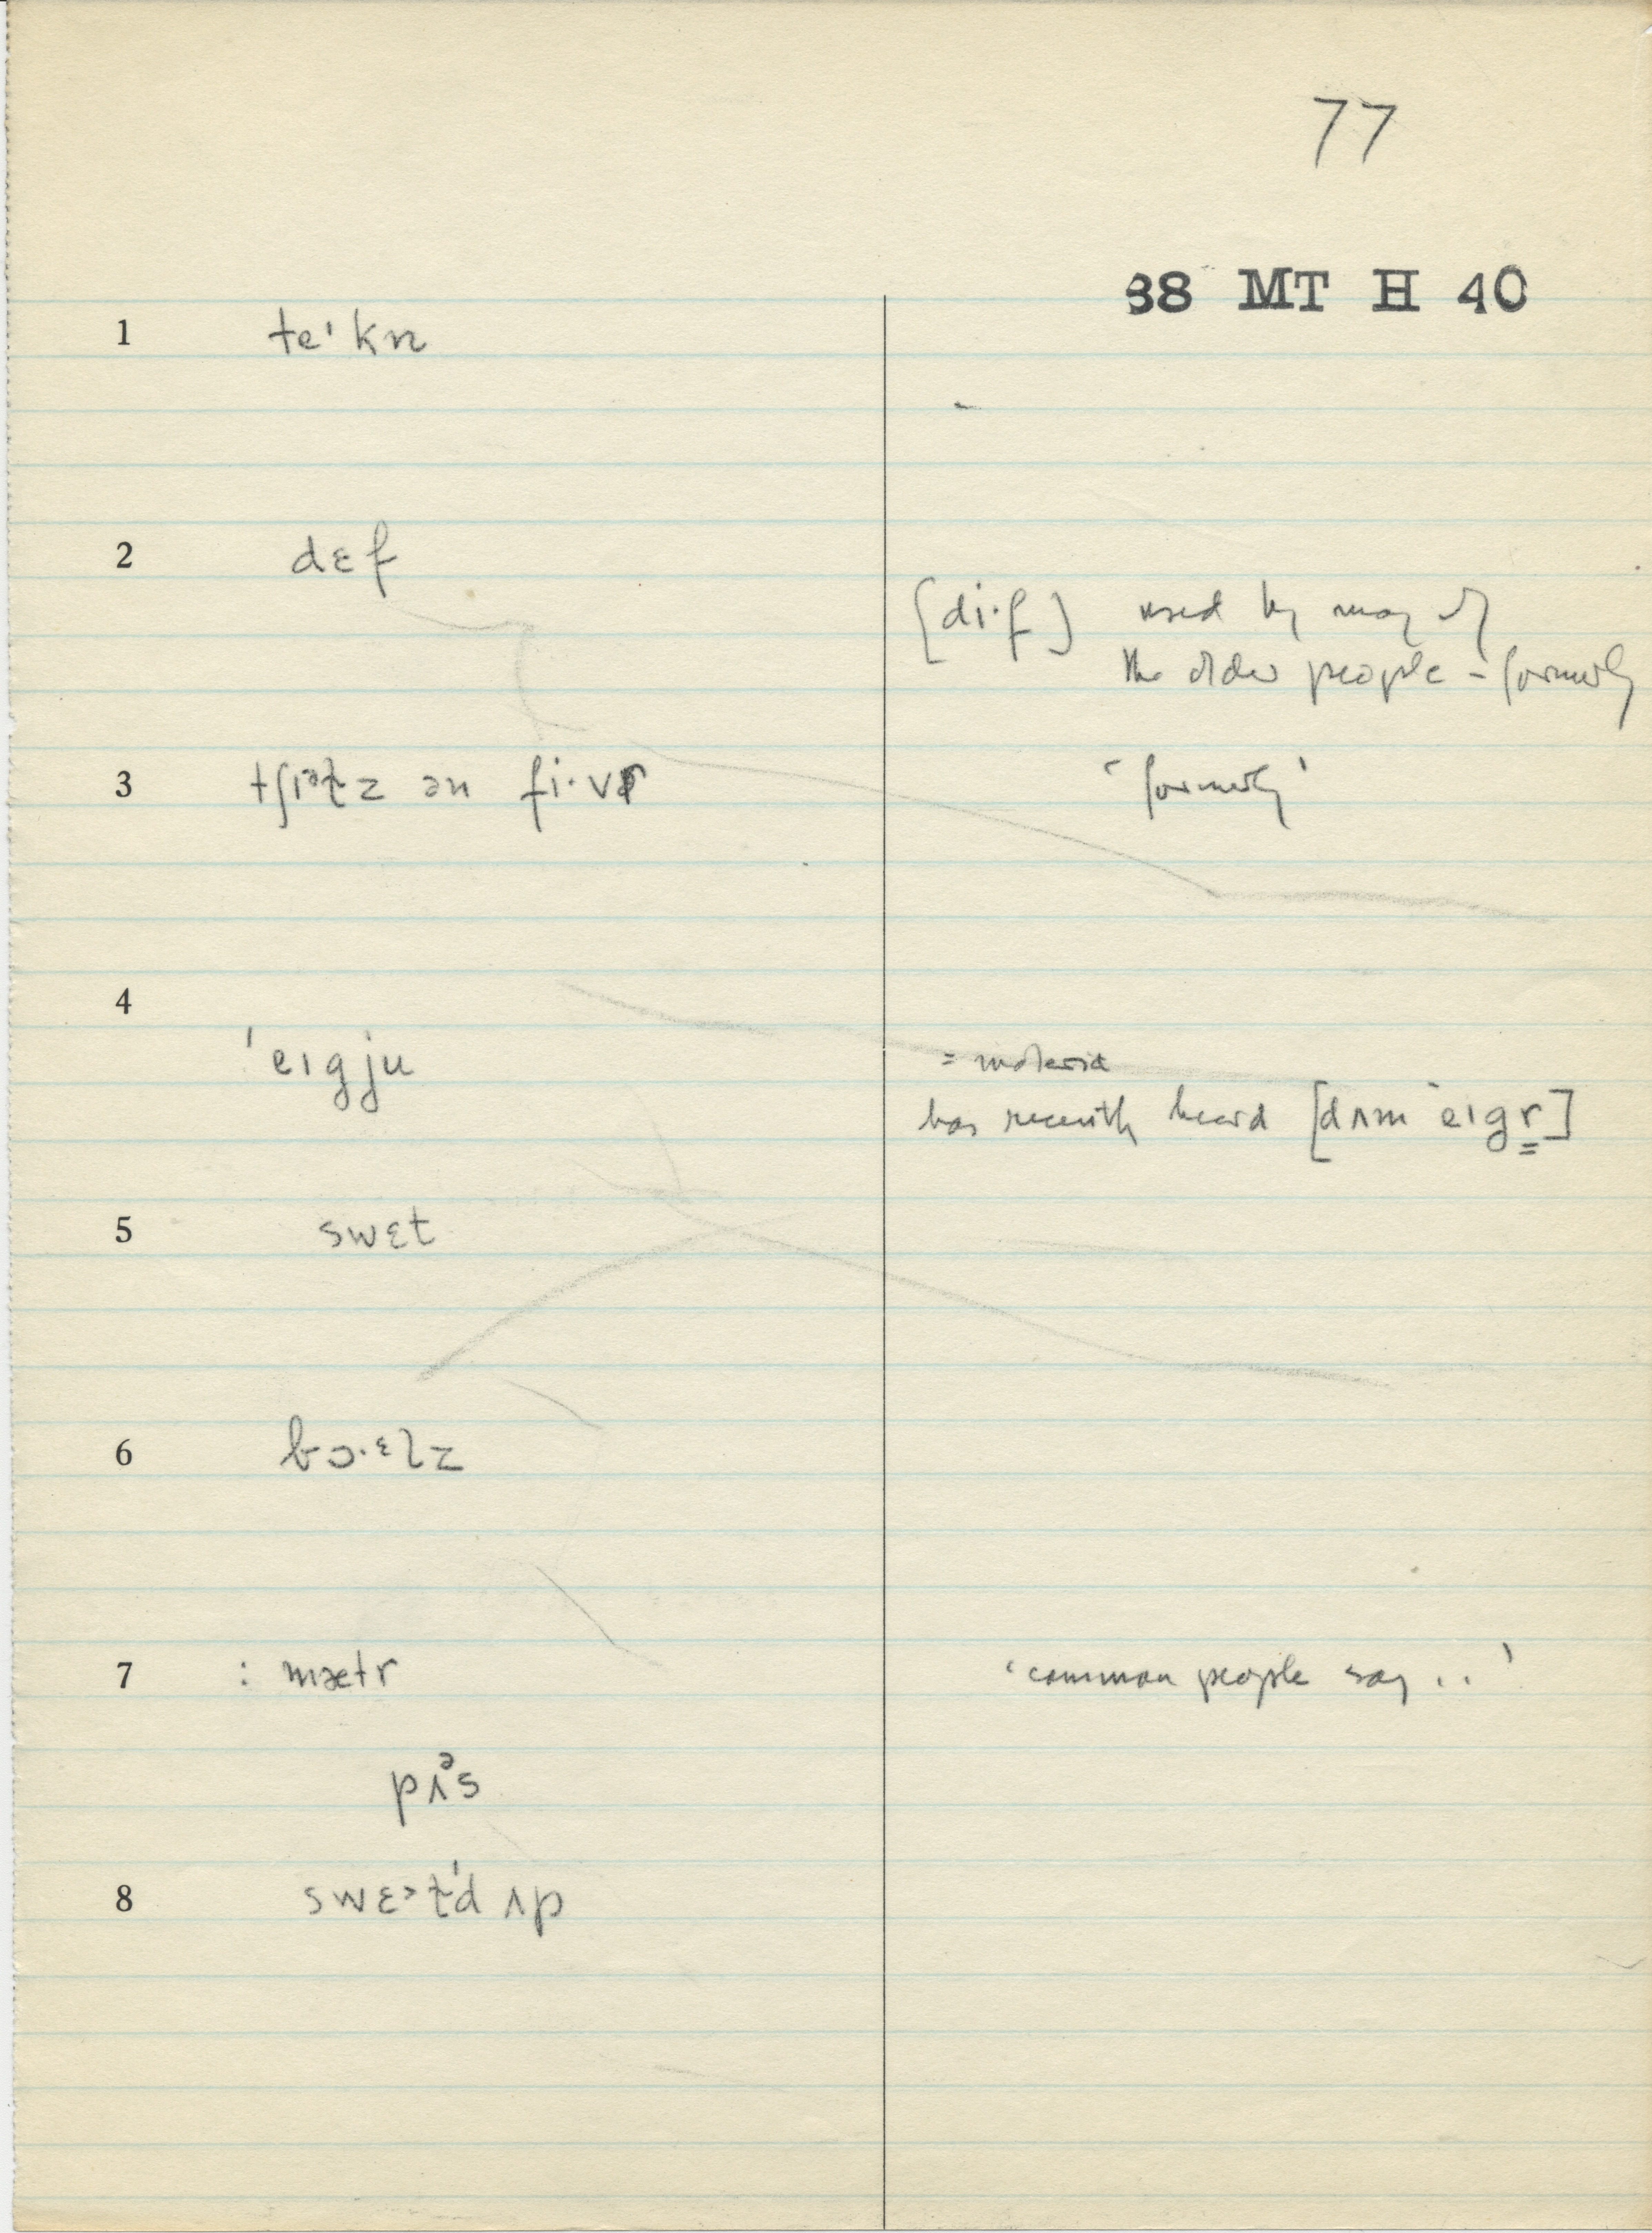 77
88 MT H 40
1 teˈkn
2 dɛf
[di·f] used by many of
the older people - formerly
3 tʃɪᵊɫz ən fi·vr
'formerly'
4
ˈeɪgju
= malaria
has recently heard [dʌm ˈeɪgr̳]
5 swɛt
6 bɔ·ᵋlz
7 : mætr
'common people say . . '
pʌᵊs
8 swɛ>t̬'d ʌp